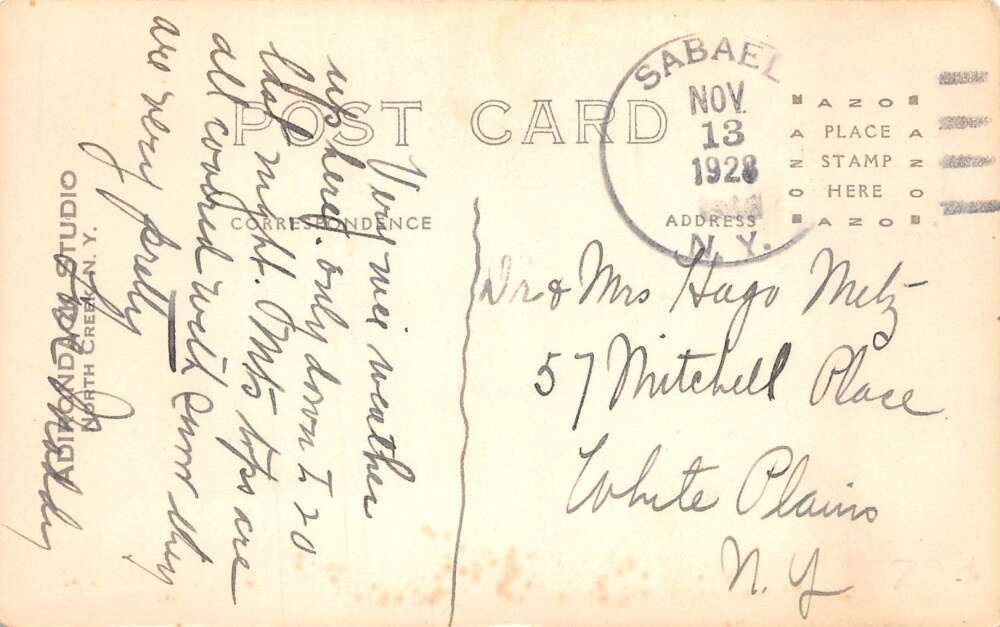 POST CARD
CORRESPONDENCE
ADDRESS
SABAEL
NOV.
13
1928
N. Y.
AZO
PLACE
STAMP
HERE
AZO
AZO
AZO
Dr & Mrs Hugo Metz
57 Mitchell Place
White Plains
N. Y
Very nice weather
up here. only down to 20
last night. Mts tops are
all covered with Snow they
are very pretty
ADIRONDACK STUDIO
NORTH CREEK, N. Y.